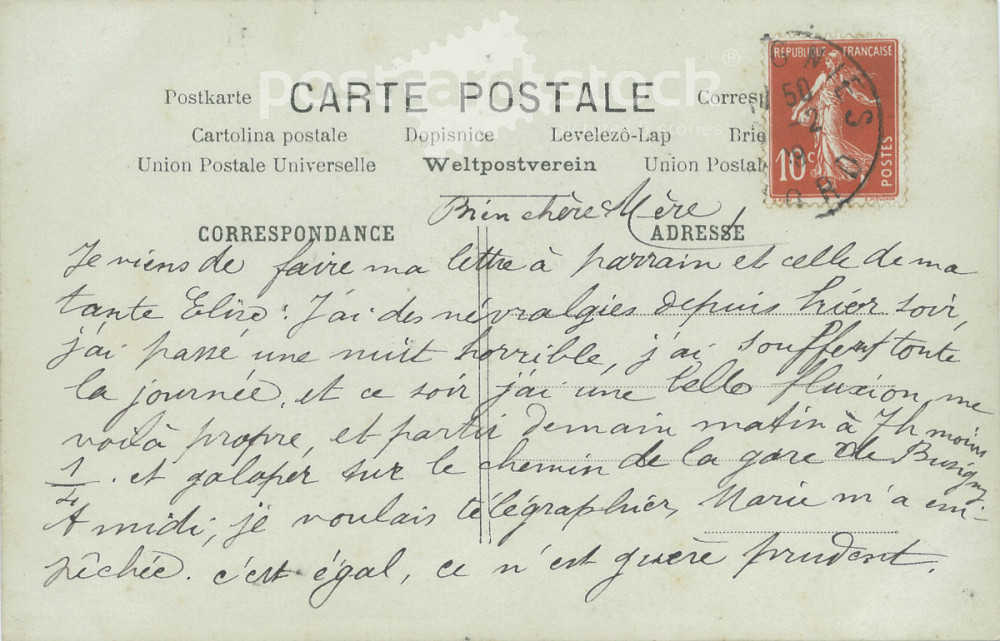 postcard stock ®
RÉPUBLIQUE FRANÇAISE
Postkarte CARTE POSTALE Corresp
10c POSTES
Cartolina postale Dopisnice Levelezô-Lap Brie
Union Postale Universelle Weltpostverein Union Postal
Bien chère Mère,
CORRESPONDANCE ADRESSE
Je viens de faire ma lettre à parrain et celle de ma
tante Elise : J'ai des névralgies depuis hier soir,
j'ai passé une nuit horrible, j'ai souffert toute
la journée, et ce soir j'ai une belle fluxion, me
voilà propre, et partir demain matin à 7h moins
1/4 . et galoper sur le chemin de la gare de Busigny.
A midi, je voulais télégraphier, Marie m'a em-
pêchée. c'est égal, ce n'est guère prudent.